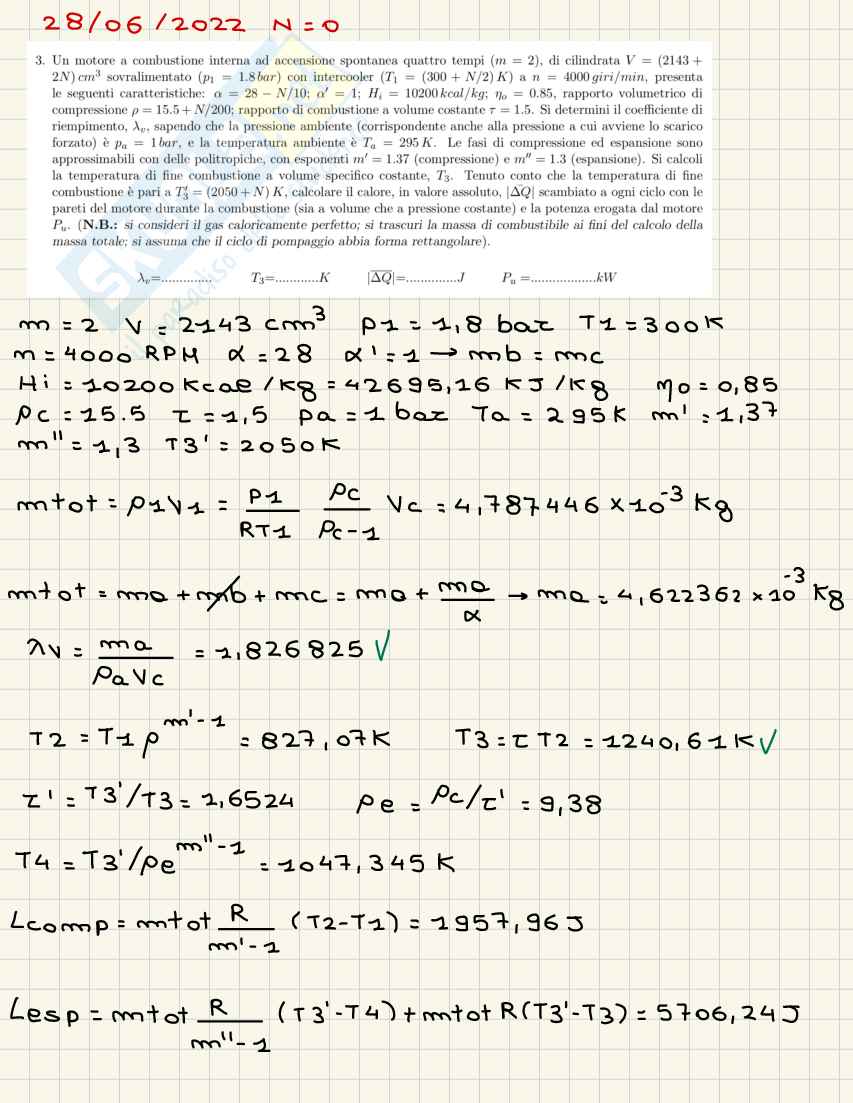 28/06/2022 N=0
3. Un motore a combustione interna ad accensione spontanea quattro tempi (m = 2), di cilindrata V = (2143 +
2N) cm³ sovralimentato (p₁ = 1.8 bar) con intercooler (T₁ = (300 + N/2) K) a n = 4000 giri/min, presenta
le seguenti caratteristiche: α = 28 − N/10; α′ = 1; Hᵢ = 10200 kcal/kg; ηₒ = 0.85, rapporto volumetrico di
compressione ρ = 15.5 + N/200; rapporto di combustione a volume costante τ = 1.5. Si determini il coefficiente di
riempimento, λᵥ, sapendo che la pressione ambiente (corrispondente anche alla pressione a cui avviene lo scarico
forzato) è pₐ = 1 bar, e la temperatura ambiente è Tₐ = 295 K. Le fasi di compressione ed espansione sono
approssimabili con delle politropiche, con esponenti m′ = 1.37 (compressione) e m″ = 1.3 (espansione). Si calcoli
la temperatura di fine combustione a volume specifico costante, T₃. Tenuto conto che la temperatura di fine
combustione è pari a T₃′ = (2050 + N) K, calcolare il calore, in valore assoluto, |ΔQ| scambiato a ogni ciclo con le
pareti del motore durante la combustione (sia a volume che a pressione costante) e la potenza erogata dal motore
Pᵤ. (N.B.: si consideri il gas caloricamente perfetto; si trascuri la massa di combustibile ai fini del calcolo della
massa totale; si assuma che il ciclo di pompaggio abbia forma rettangolare).
λᵥ=............. T₃=...........K |ΔQ|=.............J Pᵤ =.................kW
m = 2 V = 2143 cm³ p1 = 1,8 bar T1 = 300K
n = 4000 RPM α = 28 α' = 1 → mb = mc
Hi = 10200 Kcal/Kg = 42695,16 KJ/Kg ηo = 0,85
ρc = 15.5 τ = 1,5 pa = 1 bar Ta = 295K m' = 1,37
m'' = 1,3 T3' = 2050K
mtot = ρ1V1 = P1/RT1 ρc/ρc-1 Vc = 4,787446 × 10⁻³ Kg
mtot = ma + mb + mc = ma + ma/α → ma = 4,622362 × 10⁻³ Kg
λv = ma/ρaVc = 1,826825 √
T2 = T1 ρ^m'-1 = 827,07K T3 = τ T2 = 1240,61K √
τ' = T3'/T3 = 1,6524 ρe = ρc/τ' = 9,38
T4 = T3'/ρe^m''-1 = 1047,345 K
Lcomp = mtot R/m'-1 (T2-T1) = 1957,96J
Lesp = mtot R/m''-1 (T3'-T4) + mtot R(T3'-T3) = 5706,24J